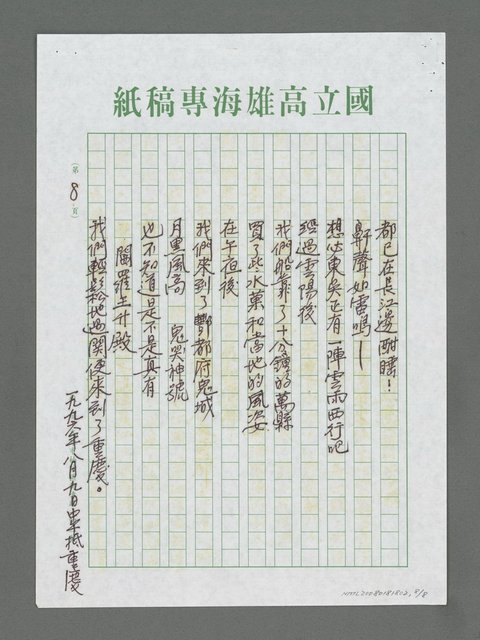 國立高雄海專稿紙
(第 8 頁)
都已在長江邊酣睡！
鼾聲如雷鳴——
想必東吳正有一陣雲雨西行吧
經過雲陽後
我們船靠了十分鐘的萬縣
買了些水菓和當地的風姿
在午夜後
我們來到了酆都府鬼城
月黑風高 鬼哭神號
也不知道是不是真有
閻羅王升殿
我們輕鬆地過關便來到了重慶。
一九九六年八月九日中午抵重慶
NMTL20080181802, 8/8